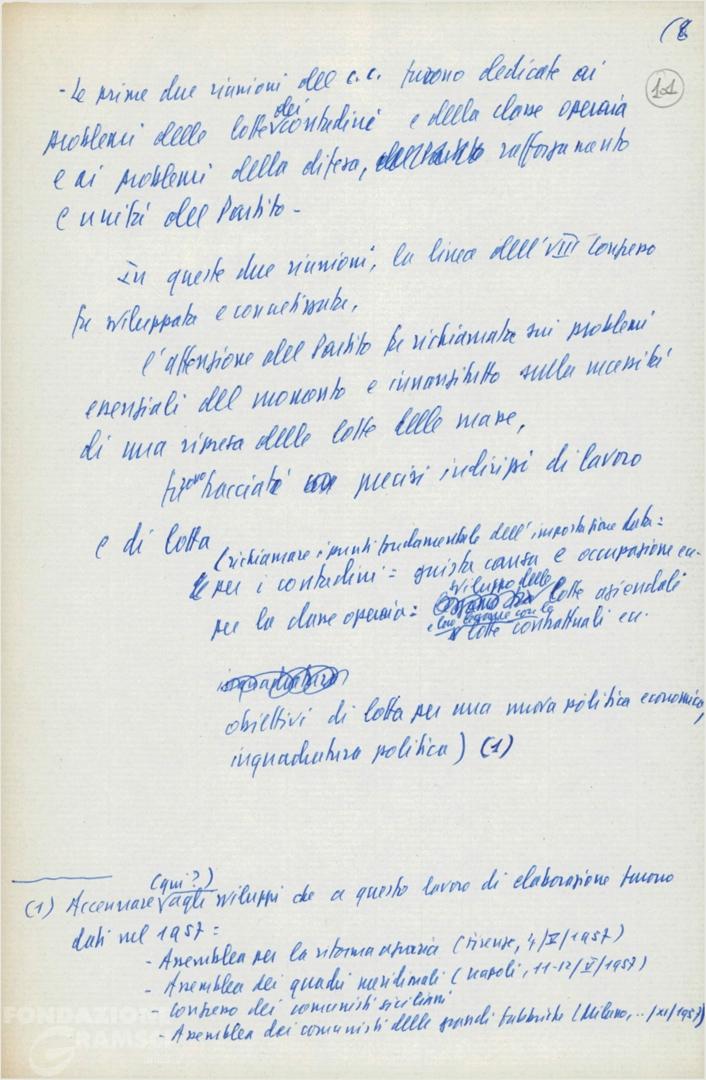 (8
11
- Le prime due riunioni del c.c. furono dedicate ai
problemi delle lotte dei contadini e della classe operaia
e ai problemi della difesa, rafforzamento
e unità del Partito -
In queste due riunioni, la linea dell'VIII Congresso
fu sviluppata e concretizzata,
l'attenzione del Partito fu richiamata sui problemi
essenziali del momento e innanzitutto sulla necessità
di una ripresa delle lotte delle masse,
furono tracciati precisi indirizzi di lavoro
e di lotta
(richiamare i punti fondamentali dell'impostazione data:
per i contadini: giusta causa e occupazione ecc.
per la classe operaia: sviluppo delle lotte aziendali
e loro legame con le
lotte contrattuali ecc.
obiettivi di lotta per una nuova politica economica,
inquadratura politica) (1)
(qui?)
(1) Accennare agli sviluppi che a questo lavoro di elaborazione furono
dati nel 1957:
- Assemblea per la riforma agraria (Firenze, 4/V/1957)
- Assemblea dei quadri meridionali (Napoli, 11-12/V/1957)
- Congresso dei comunisti siciliani
- Assemblea dei comunisti delle grandi fabbriche (Milano, ../XI/1957)
FONDAZIONE
GRAMSCI